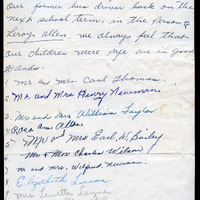 our former bus driver back on the
next school term, in the person of
Leroy Allen we always feel that
our children were safe an in Good
Hands.
1. Mr and mrs. Carl Thomas.
2. Mr. and Mrs Henry Newman
3. Mr and Mrs William Taylor
4. Rosa Ann Allen
5. Mr and Mrs Earl. W. Bailey
6. Mr & Mrs Charles Wilson
7. m and mrs. Wilford Newman.
8. Elizabeth
9. Mrs